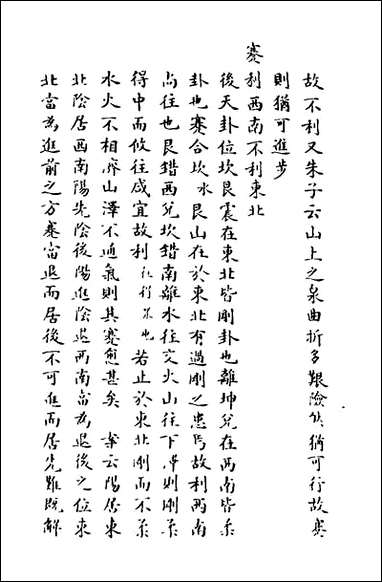 故不利又朱子云山上之泉曲折多艱險然猶可行故蹇
則猶可進步
蹇利西南不利東北
後天卦位坎艮震在東北皆剛卦也離坤兌在西南皆柔
卦也蹇合坎水艮山在於東北有過剛之患焉故利西南
尚往也艮錯西兌坎錯南離水往交火山往下澤則剛柔
得中而攸往咸宜故利 若止於東北剛而不柔
水火不相濟山澤不通氣則其蹇愈甚矣 案云陽居東
北陰居西南陽先陰後陽進陰退西南當為退後之位東
北當為進前之方蹇當退而居後不可進而居先雖既解